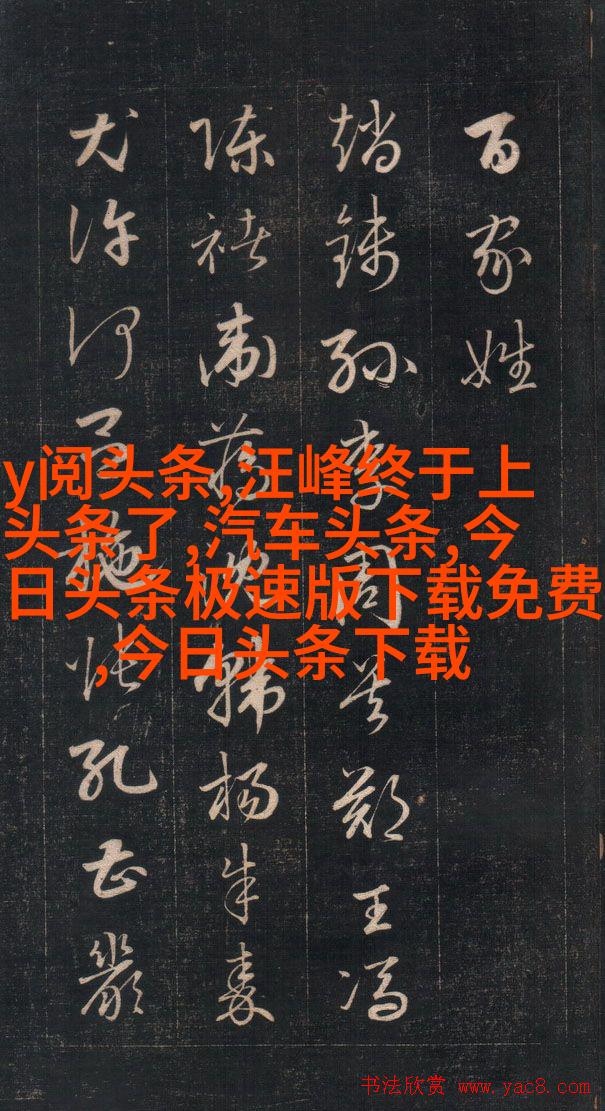 百家姓
趙錢孫李周吴鄭王馮
陳褚衛蔣沈韓楊朱秦
尤許何吕施張孔曹嚴
y阅头条,汪峰终于上
头条了,汽车头条,今
日头条极速版下载免费
,今日头条下载
书法欣赏 www.yac8.com